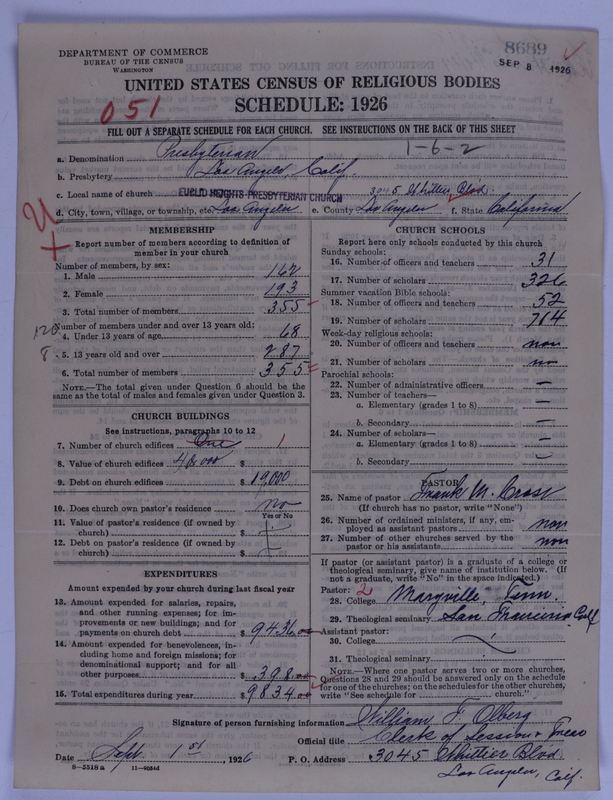 8689
SEP 8 1926
DEPARTMENT OF COMMERCE
BUREAU OF THE CENSUS
WASHINGTON
UNITED STATES CENSUS OF RELIGIOUS BODIES
SCHEDULE: 1926
051
FILL OUT A SEPARATE SCHEDULE FOR EACH CHURCH. SEE INSTRUCTIONS ON THE BACK OF THIS SHEET
1-6-2
a. Denomination Presbyterian
b. Presbytery Los Angeles, Calif.
c. Local name of church EUCLID HEIGHTS PRESBYTERIAN CHURCH 3045 Whittier Blvd.
d. City, town, village, or township, etc. Los Angeles e. County Los Angeles f. State California
MEMBERSHIP
Report number of members according to definition of member in your church
Number of members, by sex:
1. Male 162
2. Female 193
3. Total number of members 355
Number of members under and over 13 years old:
4. Under 13 years of age 68
5. 13 years old and over 287
6. Total number of members 355
NOTE.—The total given under Question 6 should be the same as the total of males and females given under Question 3.
CHURCH BUILDINGS
See instructions, paragraphs 10 to 12
7. Number of church edifices One 1
8. Value of church edifices 48000 $
9. Debt on church edifices $ 19,000
10. Does church own pastor's residence? no
Yes or No
11. Value of pastor's residence (if owned by church) $
12. Debt on pastor's residence (if owned by church) $
EXPENDITURES
Amount expended by your church during last fiscal year
13. Amount expended for salaries, repairs, and other running expenses; for improvements or new buildings; and for payments on church debt $ 9436.00
14. Amount expended for benevolences, including home and foreign missions; for denominational support; and for all other purposes $ 398.00
15. Total expenditures during year $ 9834.00
CHURCH SCHOOLS
Report here only schools conducted by this church
Sunday schools:
16. Number of officers and teachers 31
17. Number of scholars 326
Summer vacation Bible schools:
18. Number of officers and teachers 52
19. Number of scholars 714
Week-day religious schools:
20. Number of officers and teachers non
21. Number of scholars no
Parochial schools:
22. Number of administrative officers —
23. Number of teachers—
a. Elementary (grades 1 to 8) —
b. Secondary —
24. Number of scholars—
a. Elementary (grades 1 to 8) —
b. Secondary —
PASTOR
25. Name of pastor Frank M. Cross
(If church has no pastor, write "None")
26. Number of ordained ministers, if any, employed as assistant pastors non
27. Number of other churches served by the pastor or his assistants non
If pastor (or assistant pastor) is a graduate of a college or theological seminary, give name of institution below. (If not a graduate, write "No" in the space indicated.)
Pastor: 2
28. College Maryville, Tenn.
29. Theological seminary San Francisco Calf
Assistant pastor:
30. College
31. Theological seminary
NOTE.—Where one pastor serves two or more churches, Questions 28 and 29 should be answered only on the schedule for one of the churches; on the schedules for the other churches, write "See schedule for church."
Signature of person furnishing information William F. Olberg
Official title Clerk of Session + Treas
Date Sept 1st, 1926 P. O. Address 3045 Whittier Blvd.
Los Angeles, Calf.
8—5518a 11—9054d